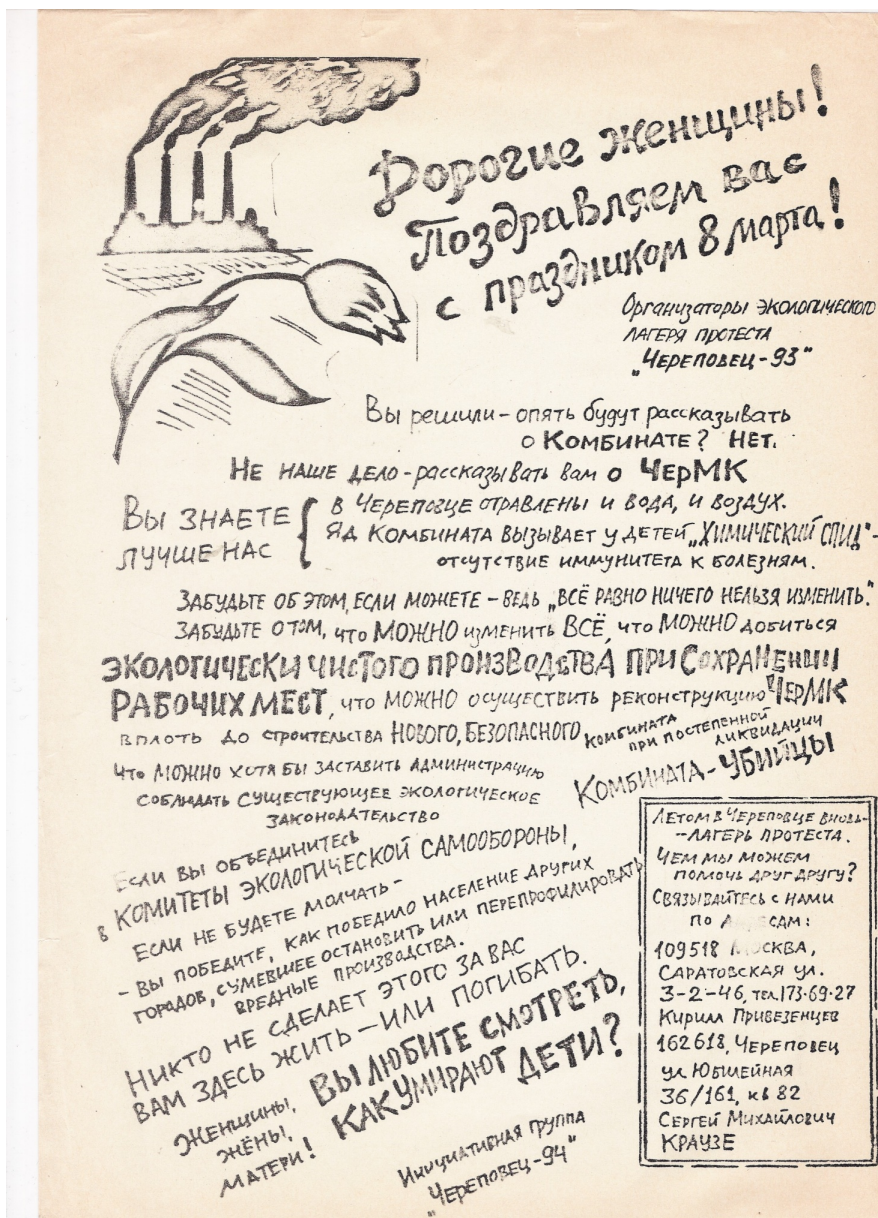 Дорогие женщины!
Поздравляем вас
с праздником 8 марта!
Организаторы экологического
лагеря протеста
„Череповец-93"
Вы решили – опять будут рассказывать
о Комбинате? Нет.
Не наше дело - рассказывать вам о ЧерМК
Вы знаете
лучше нас
в Череповце отравлены и вода, и воздух.
Яд Комбината вызывает у детей „химический СПИД" -
отсутствие иммунитета к болезням.
Забудьте об этом, если можете – ведь „всё равно ничего нельзя изменить."
Забудьте о том, что МОЖНО изменить ВСЁ, что МОЖНО добиться
экологически чистого производства при сохранении
рабочих мест, что МОЖНО осуществить реконструкцию ЧерМК
вплоть до строительства нового, безопасного комбината
при постепенной
ликвидации
Комбината - убийцы
что МОЖНО хотя бы заставить администрацию
соблюдать существующее экологическое
законодательство
Если вы объединитесь
в комитеты экологической самообороны,
если не будете молчать -
- вы победите, как победило население других
городов, сумевшее остановить или перепрофилировать
вредные производства.
Никто не сделает этого за вас
Вам здесь жить – или погибать.
Женщины,
жёны,
матери!
Вы любите смотреть,
как умирают дети?
Инициативная группа
„Череповец-94"
Летом в Череповце вновь-
-лагерь протеста.
Чем мы можем
помочь друг другу?
Связывайтесь с нами
по
109518 Москва,
Саратовская ул.
3-2-46, тел.173-69-27
Кирилл Привезенцев
162618, Череповец
ул Юбилейная
36/161, кв 82
Сергей Михайлович
Краузе